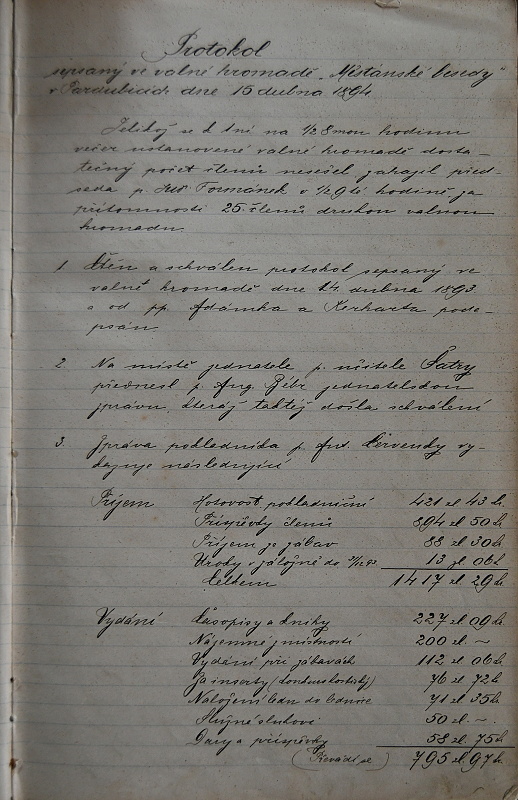 Protokol
sepsaný ve valné hromadě "Městánské besedy"
v Pardubicích dne 15 dubna 1894.
Jelikož se k dni na 1/2 8mou hodinu
večer ustanovené valné hromadě dosta-
tečný počet členů nesešel zahájil před-
seda p. Formánek o 1/2 9té hodině za
přítomnosti 25. členů druhou valnou
hromadu.
1. Čten a schválen protokol sepsaný ve
valné hromadě dne 14. dubna 1893
a od pp. Adámka a Kerharta pode-
psán.
2. Na místě jednatele p. učitele Šatry
přednesl p. Aug. jednatelskou
zprávu, kteráž taktéž došla schválení
3. Zpráva pokladníka p. Ant. Červenky vy-
kazuje následující
Příjem Hotovost pokladniční 421 zl 43 k.
Příspěvky členů 894 zl. 50 k.
Příjem ze zábav 88 zl 30 k.
Úroky v záložně do 31/12 93 13 zl. 06 k.
Celkem 1417 zl. 29 k.
Vydání Časopisy a knihy 227 zl 09 k.
Nájemné z místností 200 zl. ~
Vydání při zábavách 112 zl. 06 k.
Za inserty 76 zl. 72 k
Naložení ledu do lednice 71 zl. 35 k.
Služné sluhovi 50 zl. ~.
Dary a příspěvky 58 zl. 75 k.
(Převádí se) 795 zl. 97 k.